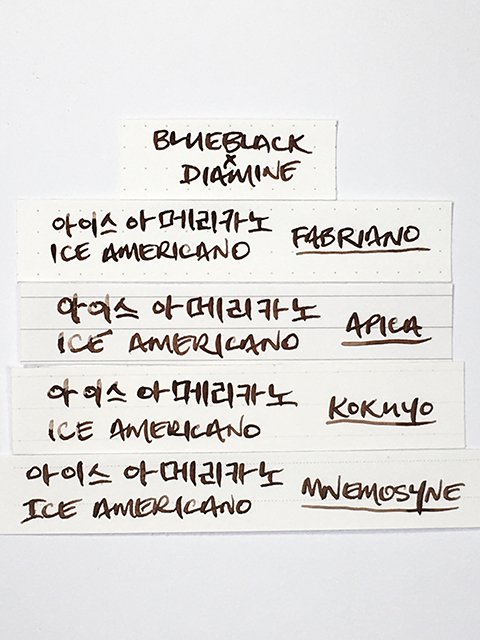 BLUEBLACK
x
DIAMINE
아이스 아메리카노
ICE AMERICANO
FABRIANO
아이스 아메리카노
ICE AMERICANO
APICA
아이스 아메리카노
ICE AMERICANO
KOKUYO
아이스 아메리카노
ICE AMERICANO
MNEMOSYNE